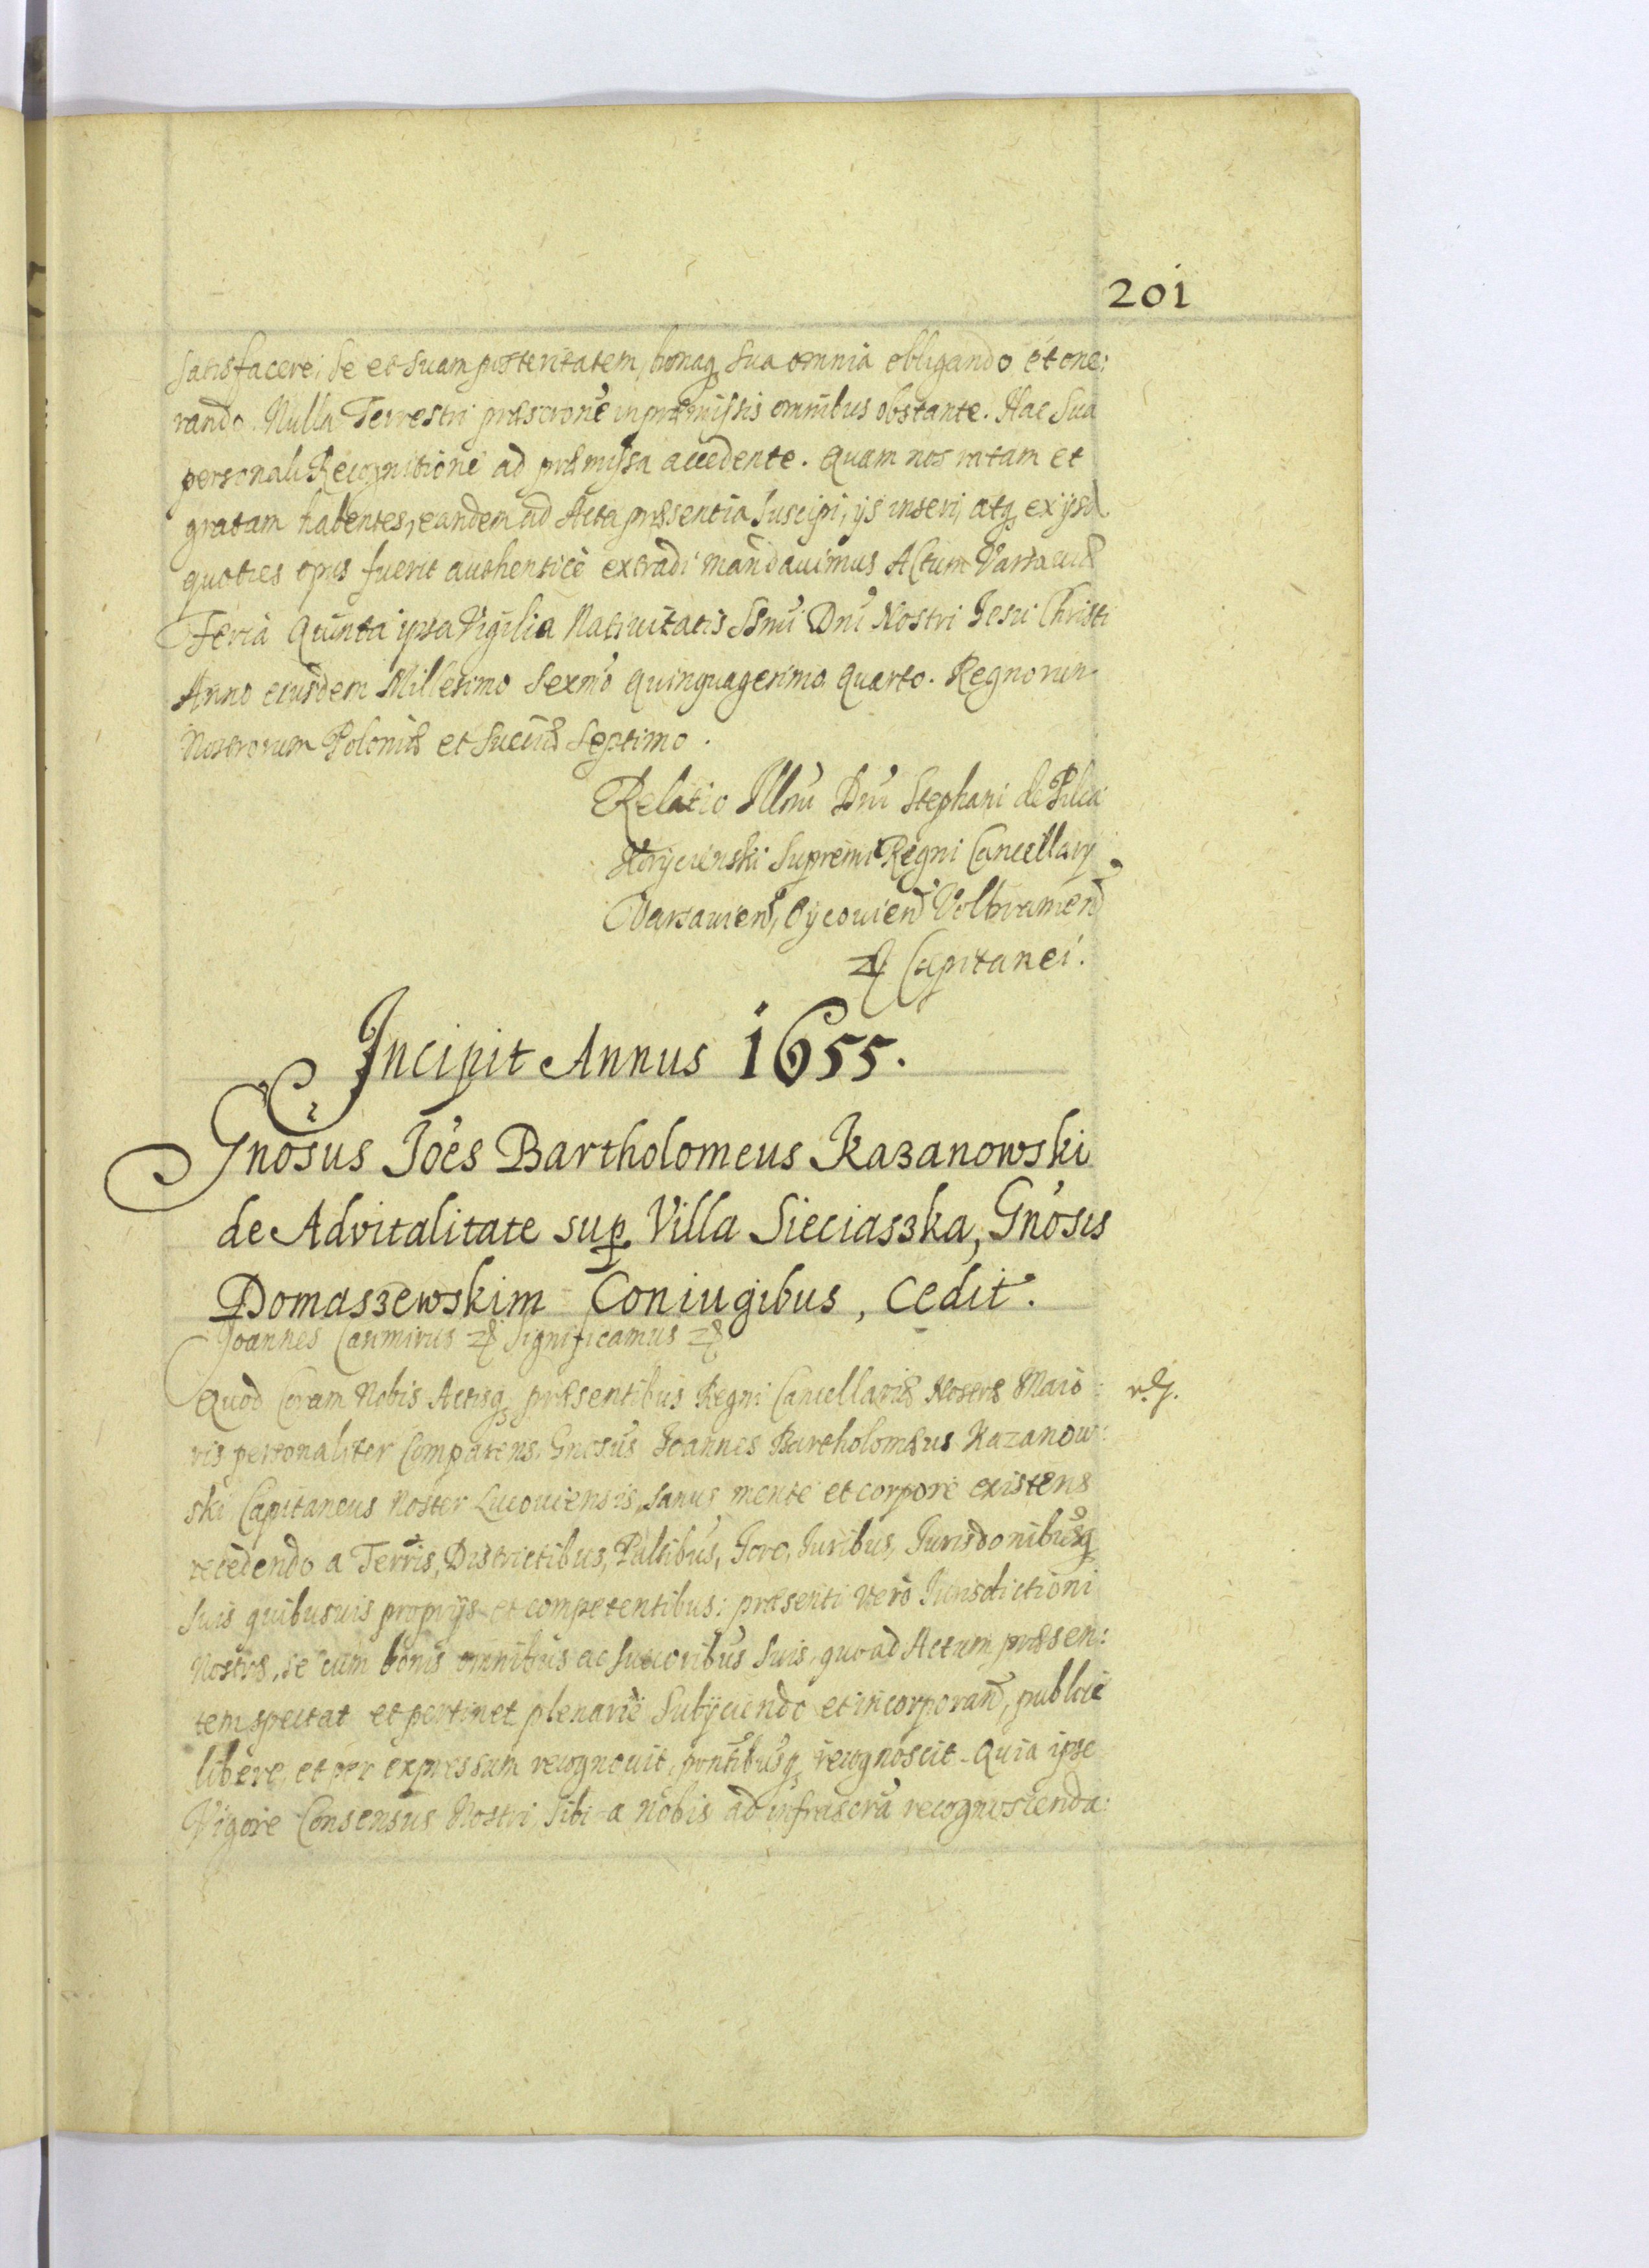 201
satisfacere; se et suam posteritatem, bonaq; sua omnia obligando et one:
rando. Nulla Terrestri præscrone in præmissis omnibus obstante. Hac sua
personali Recognitione ad præmissa accedente. Quam nos ratam et
gratam habentes, eandem ad Acta præsentia suscipi, ijs inseri, atq; ex ijsd.
quoties opus fuerit authenticè extradi mandavimus Actum Varsaviæ
Feria Quinta ipsa Vigilia Nativitatis Ssmi Dni Nostri Jesu Christi
Anno eiusdem Millesimo Sexmo Quinquagesimo Quarto. Regnorum
Nostrorum Poloniæ et Sueciæ Septimo.
Relatio Illmi Dni Stephani de Pilca
Koryciński Supremi Regni Cancellarij
Varsavien, Oÿcovien Volbramen
etc Capitanei.
Incipit Annus 1655.
Gnosus Joés Bartholomeus Kazanowski
de Advitalitate sup. Villa Sieciaszka, Gnósis
Domaszewskim Coniugibus, Cedit.
Joannes Casimirus etc Significamus etc
Quod Coram Nobis Actisq; præsentibus Regni Cancellariæ Nostræ Maio: r. G.
ris personaliter Comparens. Gnosus Joannes Bartholomæus Kazanow:
ski Capitaneus Noster Lucoviensis, sanus mente et corpore existens
recedendo a Terris, Districtibus, Paltibus, Foro, Juribus, Jurisdonibusq;
suis quibusvis proprijs et competentibus: præsenti verò Jurisdictioni
Nostræ, se cum bonis omnibus ac succoribus suis, quoad Actum præsen:
tem spectat et pertinet plenariè Subijciendo et incorporand, publicè
liberè, et per expressum recognovit, pntibusq; recognoscit. Quia ipse
Vigore Consensus Nostri, sibi a Nobis ad infrascra recognoscenda: